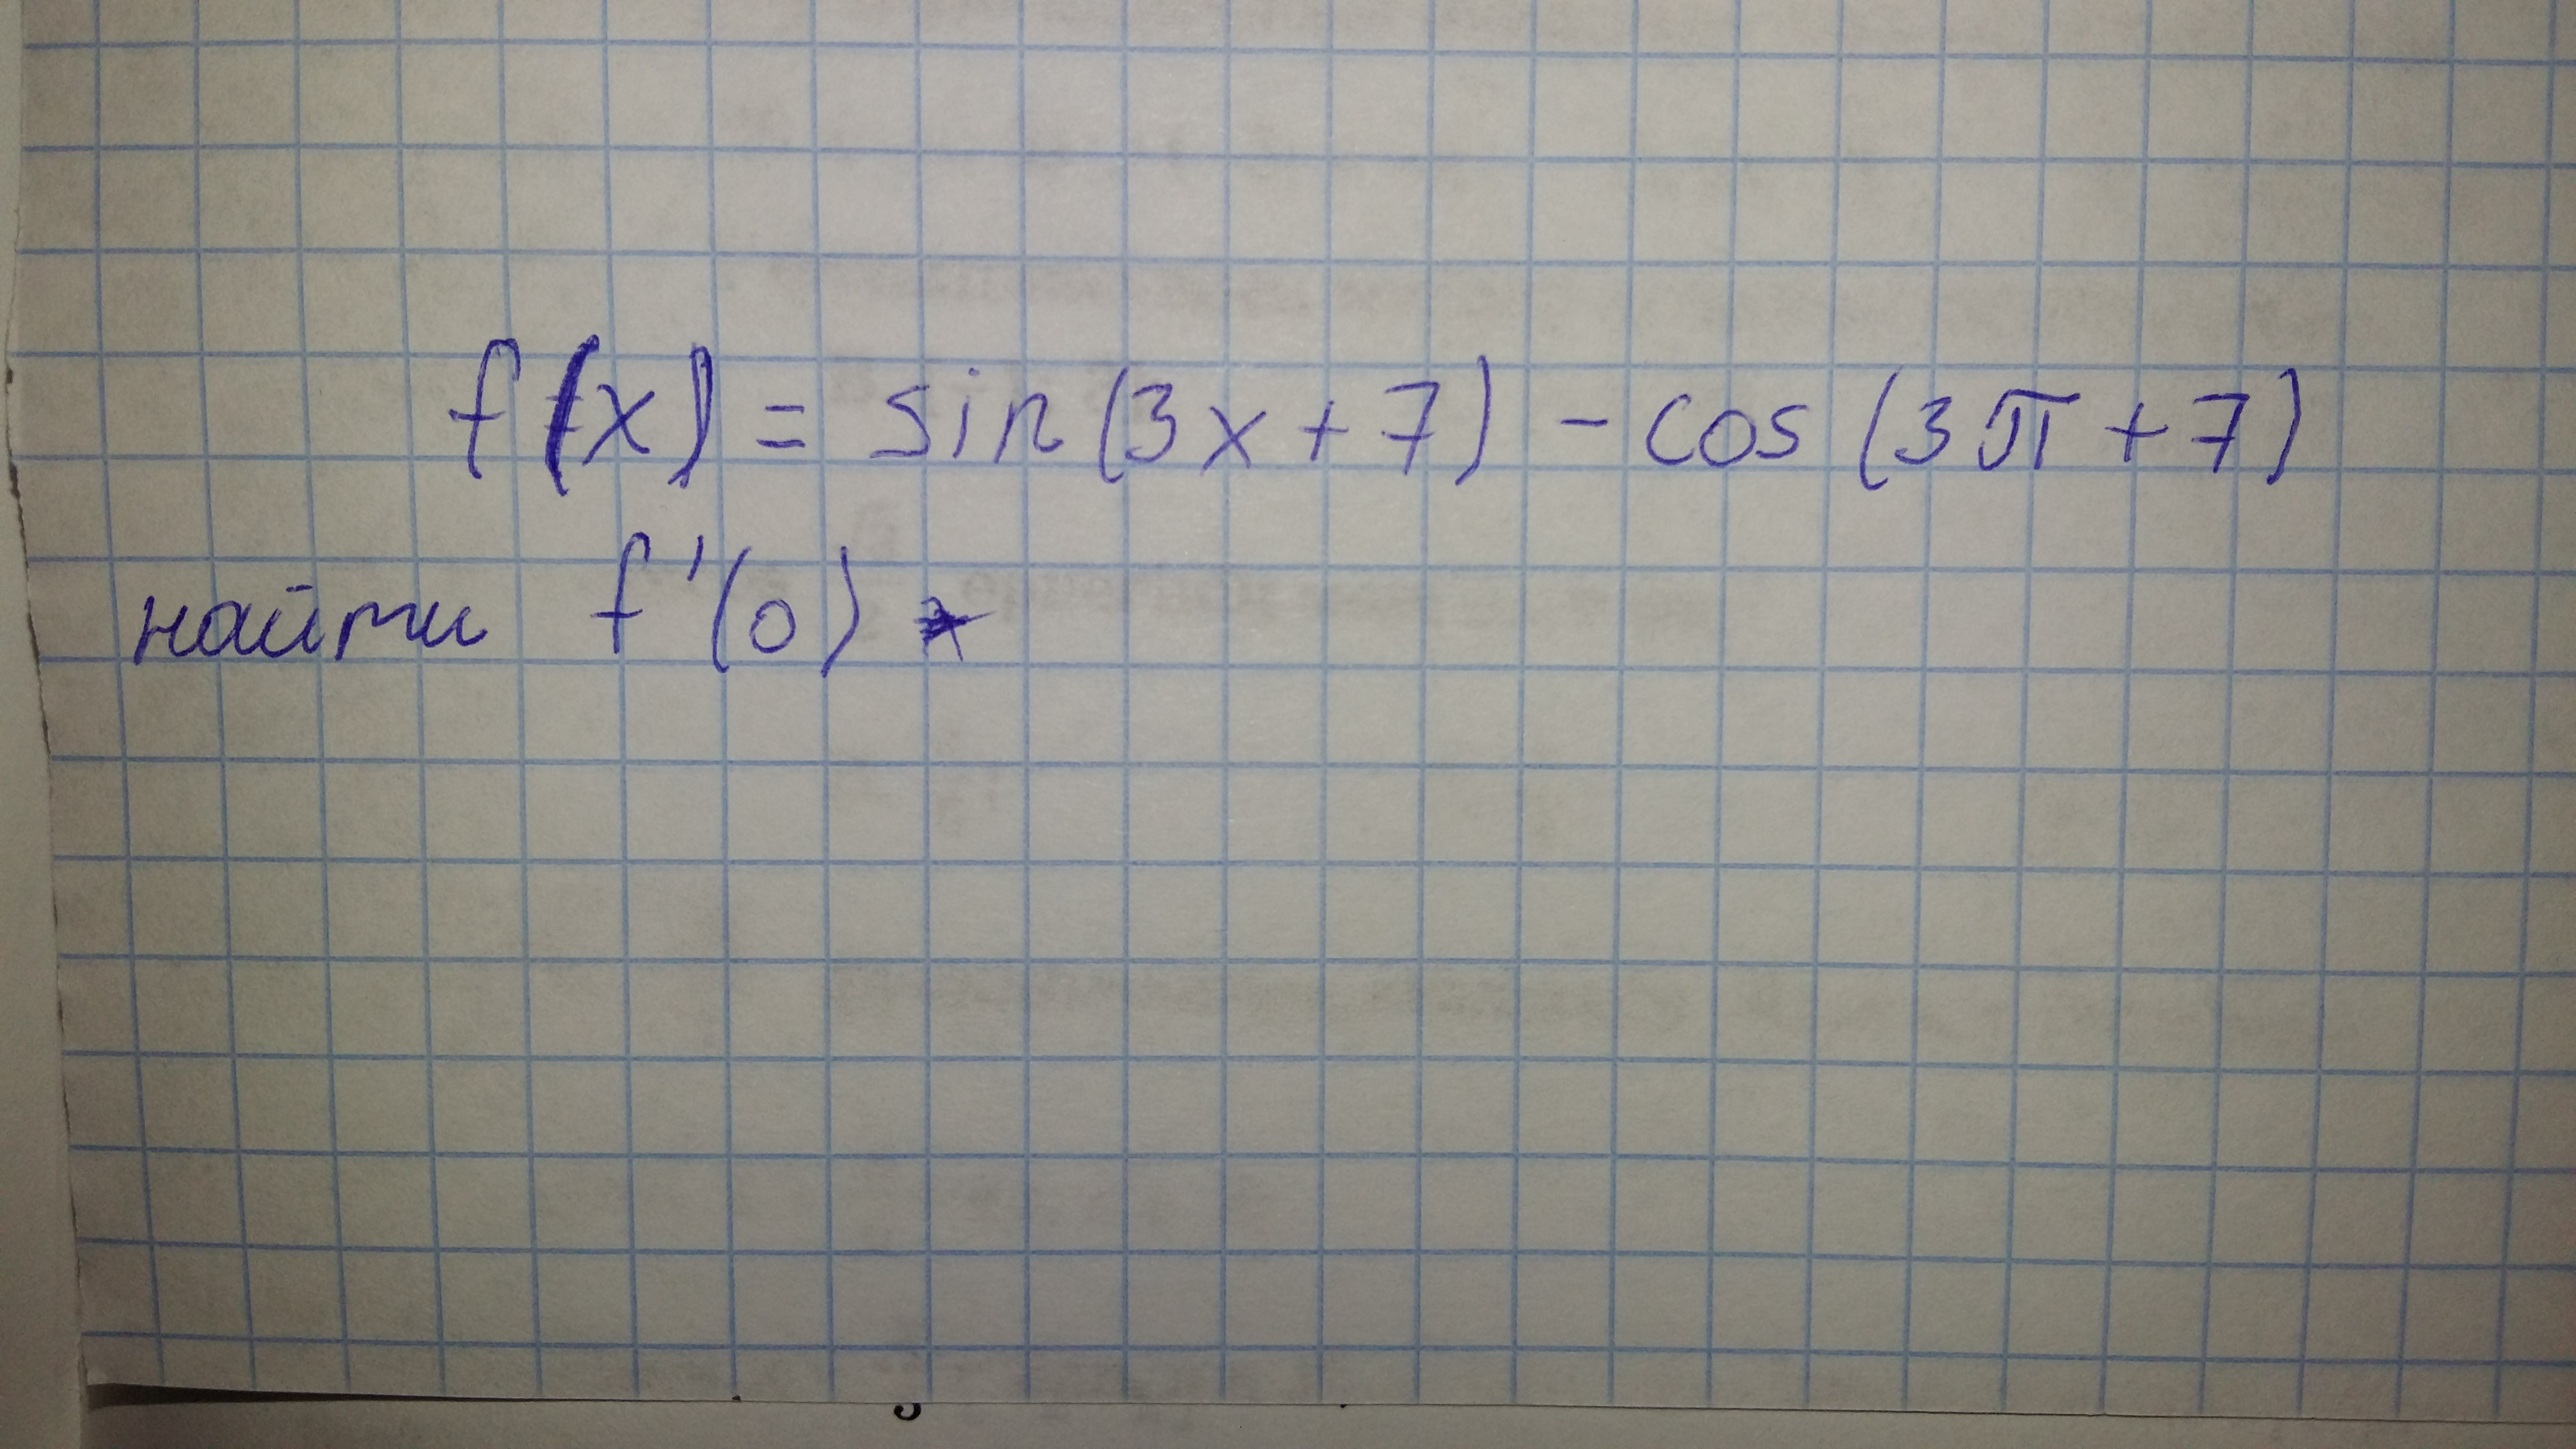 f(x) = sin(3x+7) - cos(3π+7)
найти f'(0)